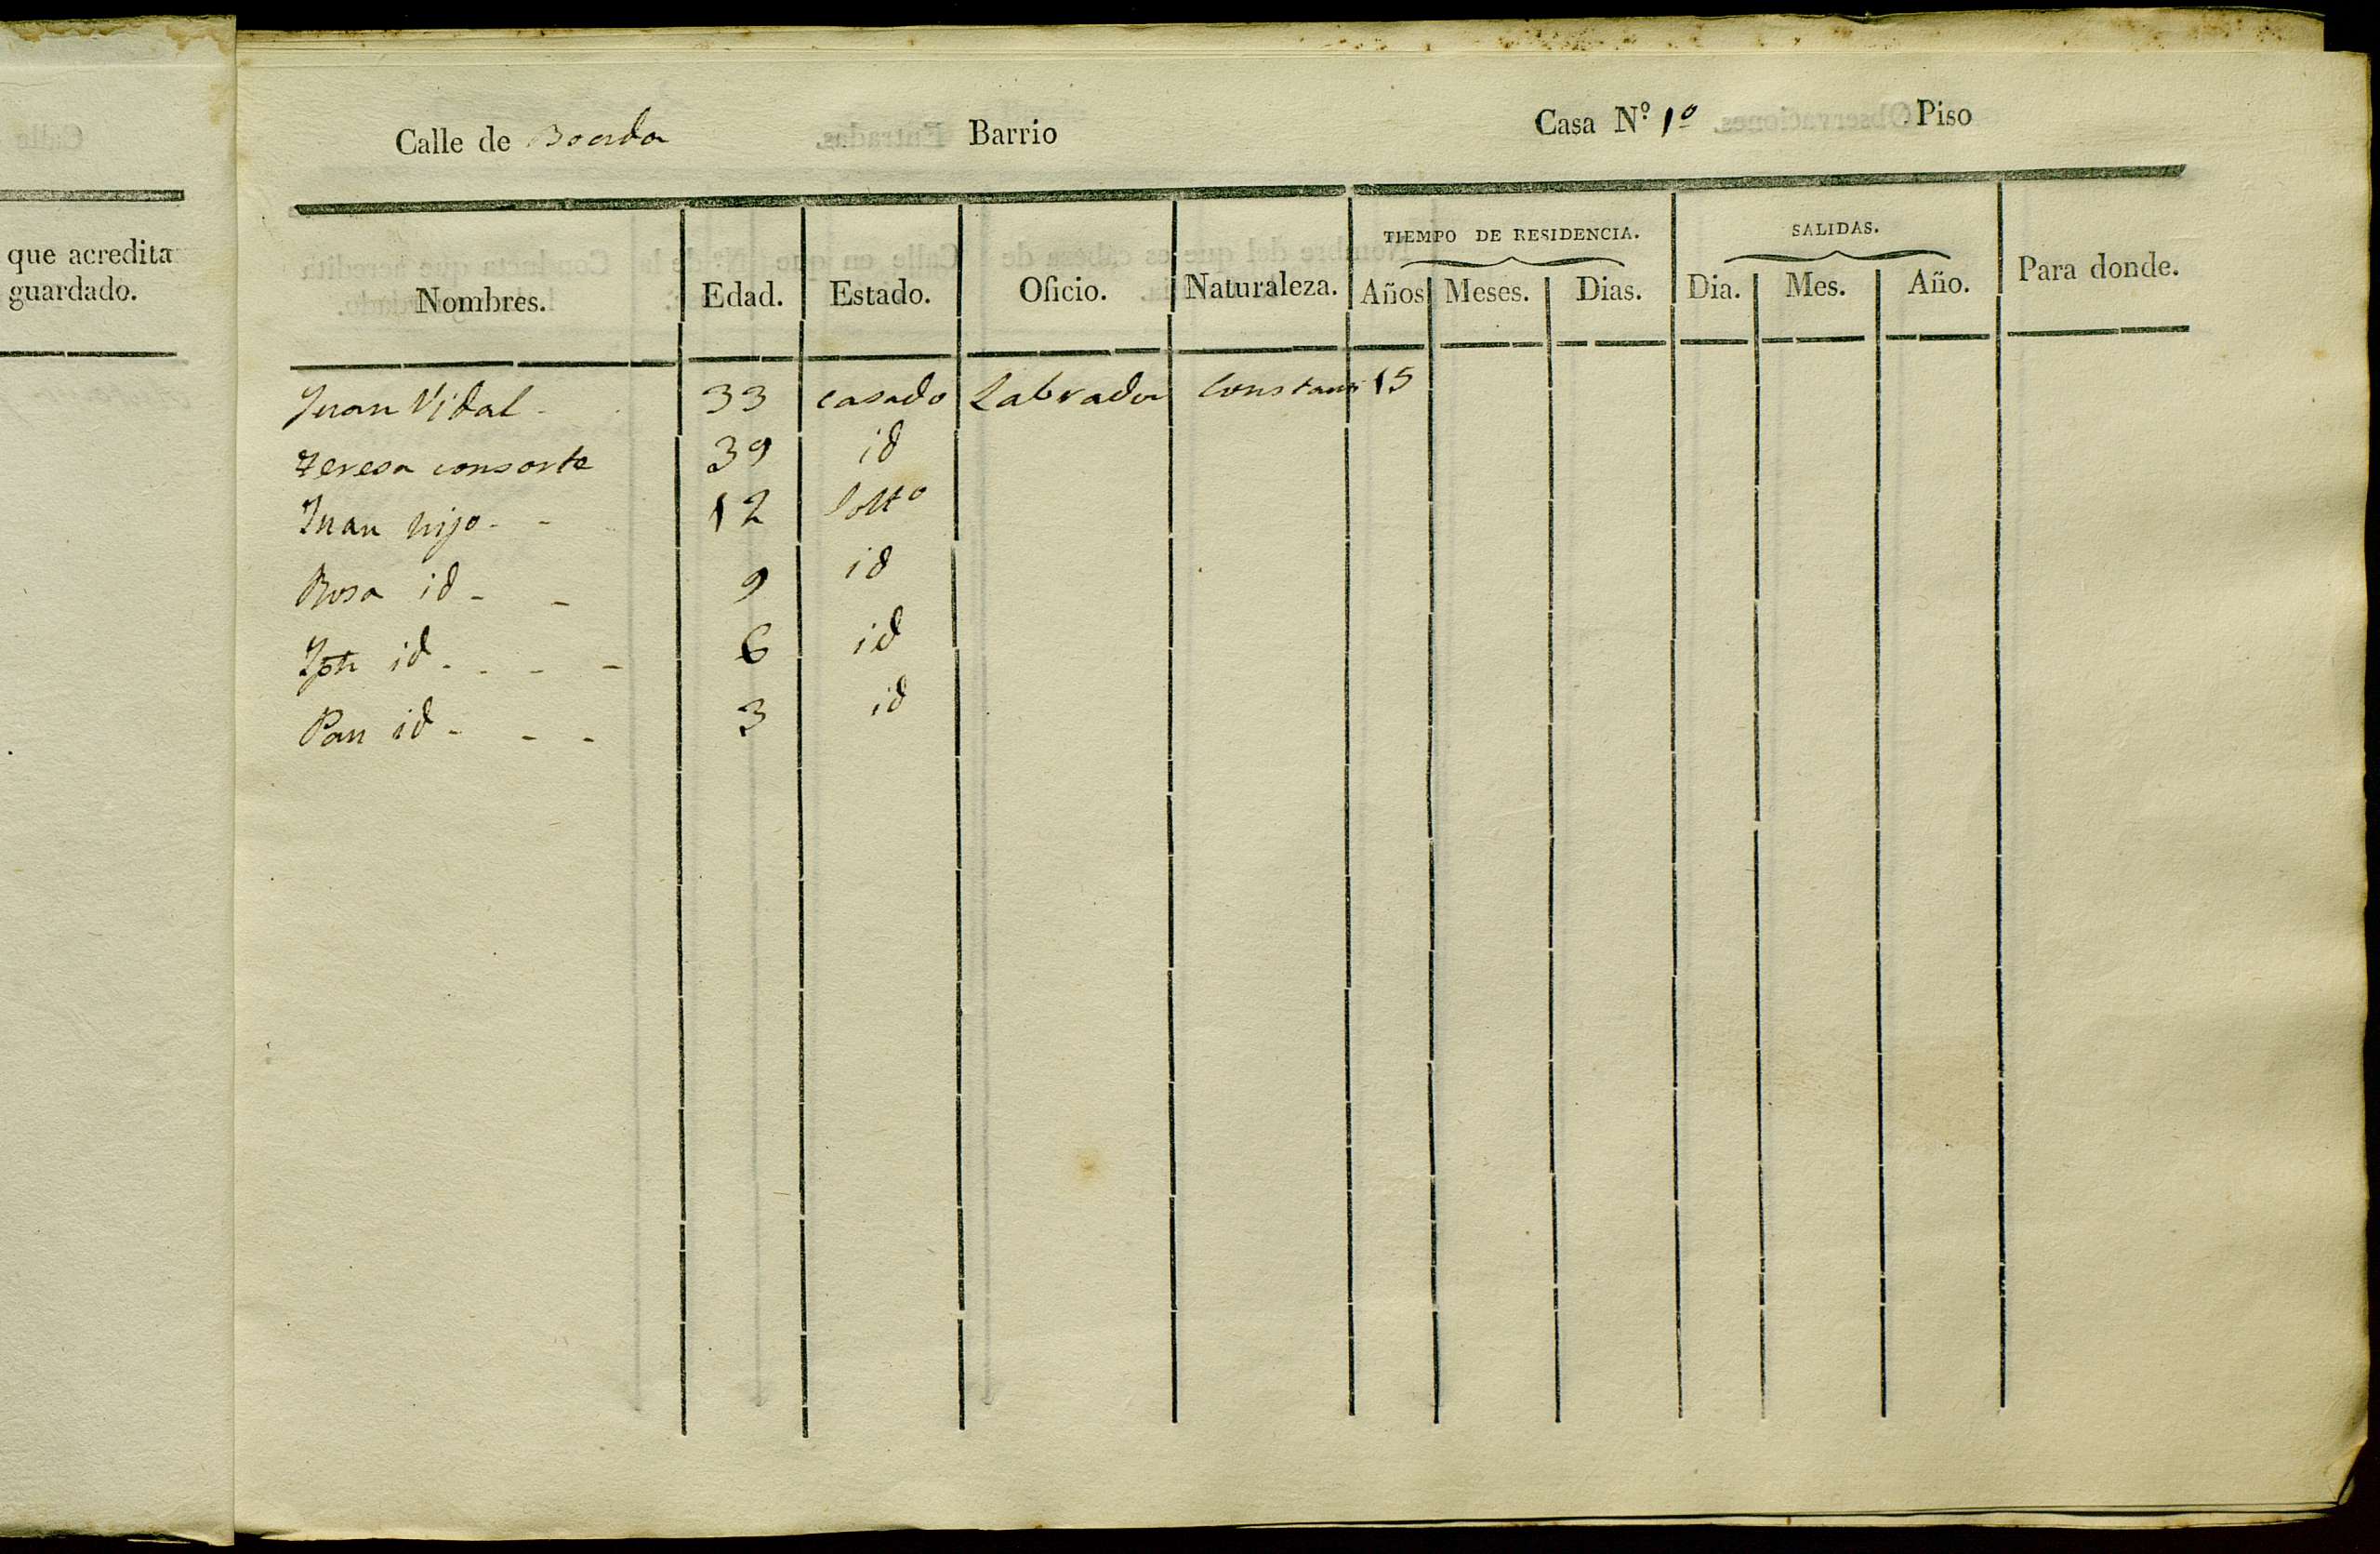 que acredita
guardado.
Calle de Boada Barrio Casa N.º 1º Piso
Nombres. Edad. Estado. Oficio. Naturaleza. TIEMPO DE RESIDENCIA. Años Meses. Dias. SALIDAS. Dia. Mes. Año. Para donde.
Juan Vidal - 33 casado Labrador Constanti 15
Teresa consorte 39 id
Juan hijo - - 12 soltº
Rosa id - - 9 id
Jph id - - - - 6 id
Pau id - - - 3 id